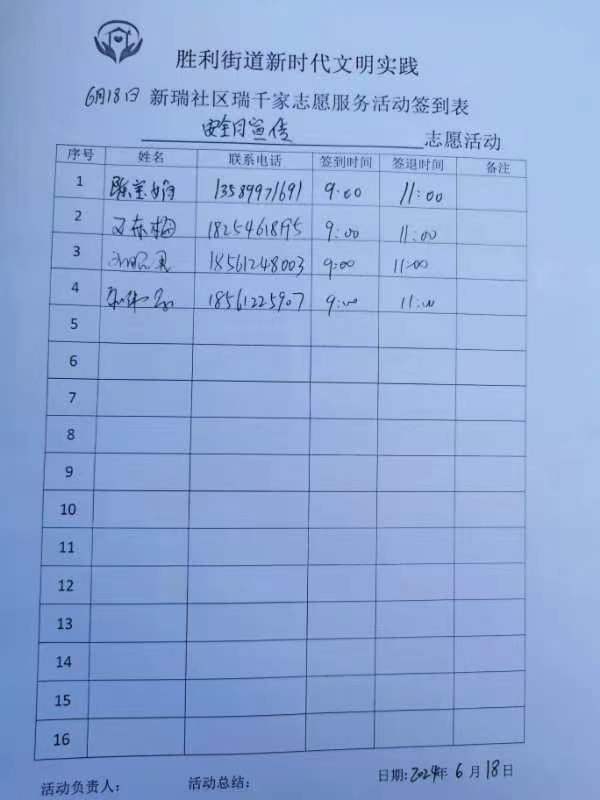 胜利街道新时代文明实践
6月18日 新瑞社区瑞千家志愿服务活动签到表
安全月宣传 志愿活动
序号 姓名 联系电话 签到时间 签退时间 备注
1 13589971691 9:00 11:00
2 18254618195 9:00 11:00
3 18561248003 9:00 11:00
4 18561225907 9:00 11:00
5
6
7
8
9
10
11
12
13
14
15
16
活动负责人: 活动总结: 日期:2024年 6 月 18 日